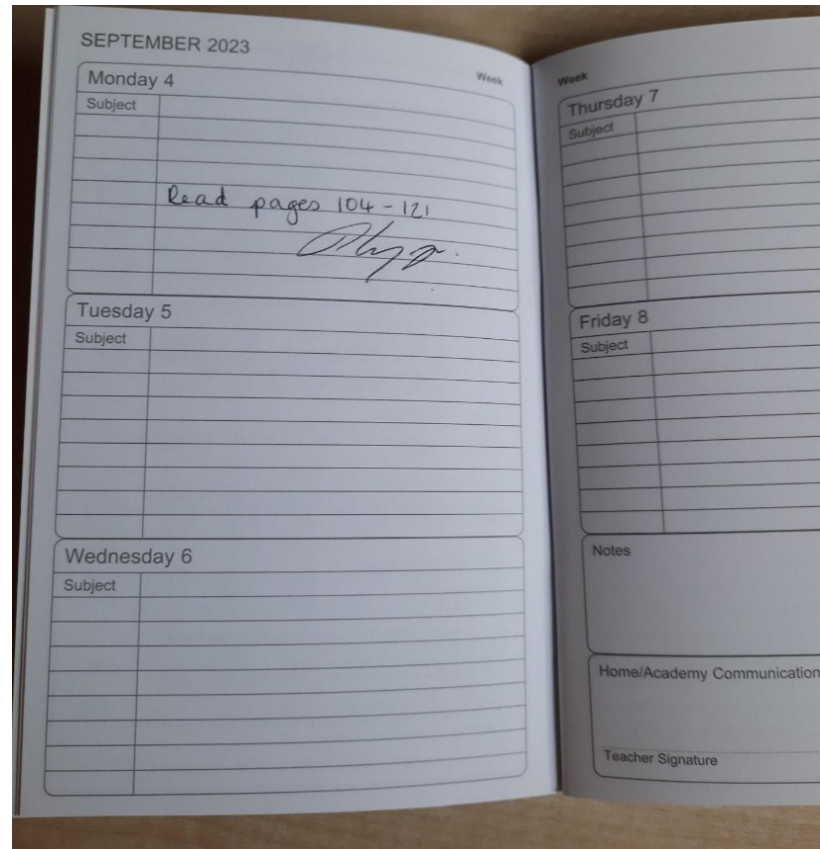 SEPTEMBER 2023
Week
Monday 4
Subject
Read pages 104 - 121
Tuesday 5
Subject
Wednesday 6
Subject
Week
Thursday 7
Subject
Friday 8
Subject
Notes
Home/Academy Communication
Teacher Signature